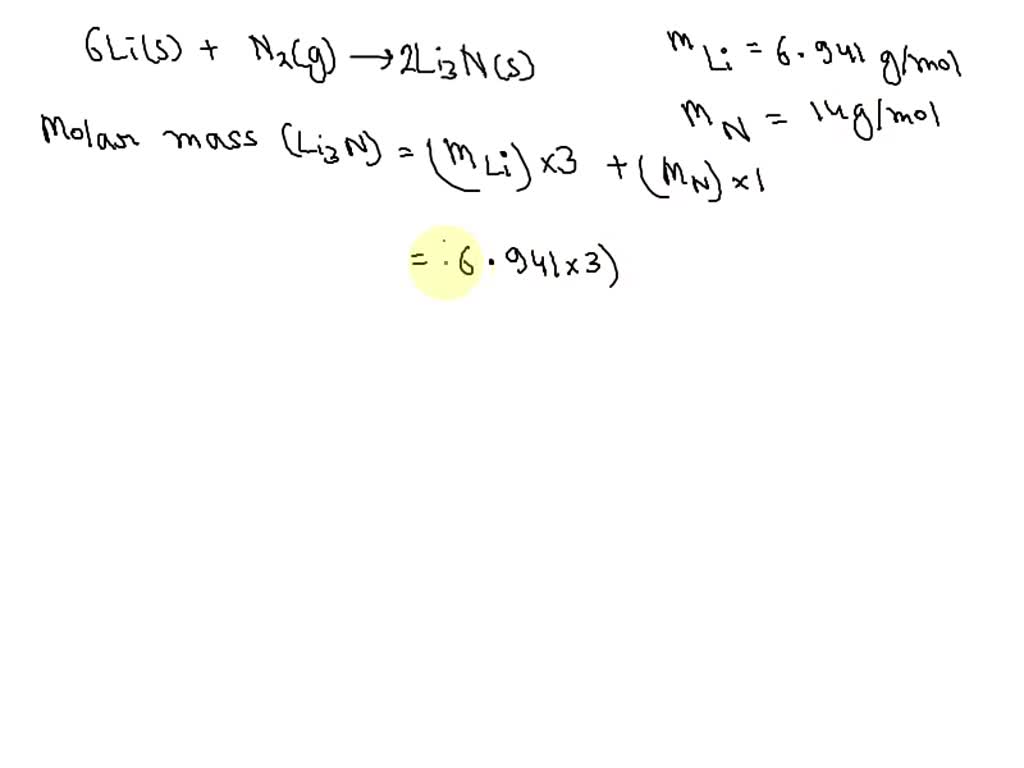 6Li(s) + N₂(g) → 2Li₃N(s)
m Li = 6.941 g/mol
m N = 14g/mol
Molar mass (Li₃N) = (m Li) ×3 + (m N) ×1
= 6.941×3)